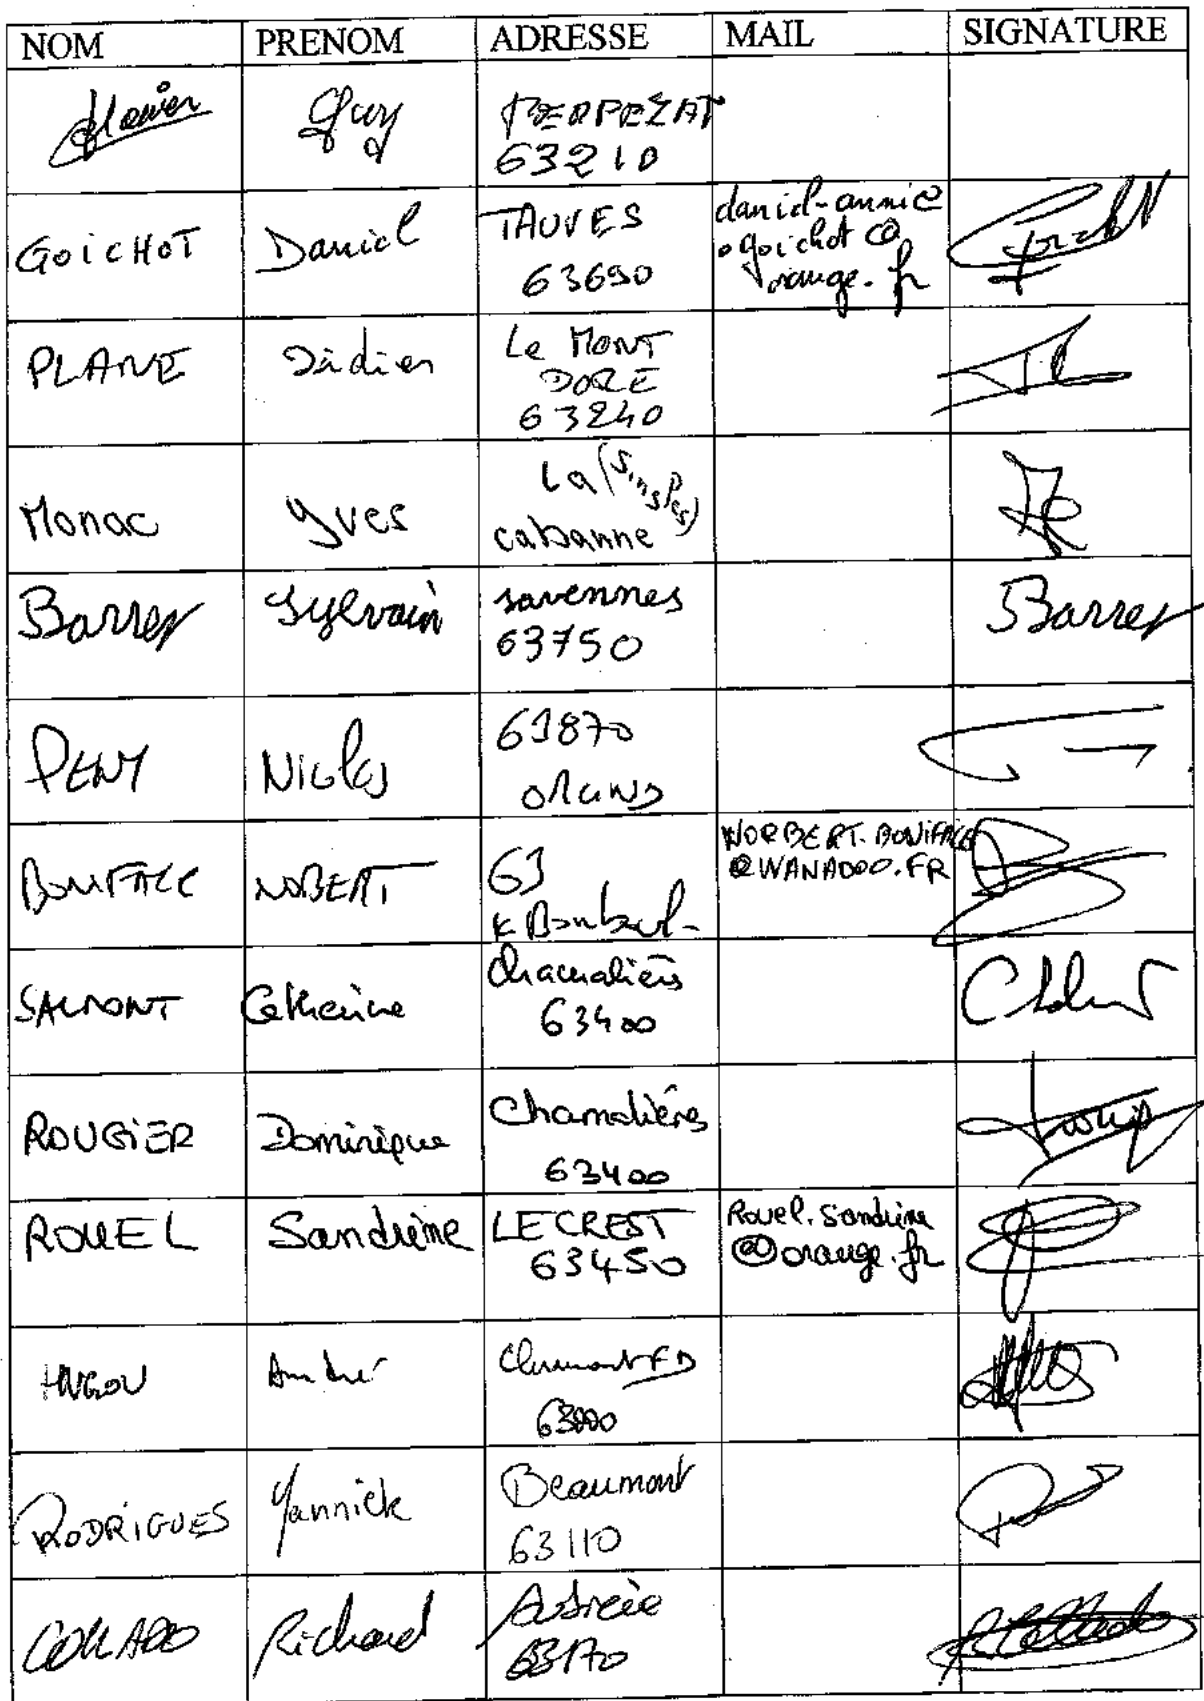 NOM PRENOM ADRESSE MAIL SIGNATURE
Guy PERPEZAT
63210
GOICHOT Daniel TAUVES daniel-annie
63690 .goichot@
orange.fr
PLANE Didier Le MONT
DORE
63240
Monac Yves La (Singles)
cabanne
Barrer Sylvain savennes Barrer
63750
PENY Nicolas 63870
orcines
BONIFACE NOBERT 63 NORBERT.BONIFACE
@WANADOO.FR
SALMONT Catherine chamalières
63400
ROUGIER Dominique Chamalières
63400
ROUEL Sandrine LE CREST Rouel.Sandrine
63450 @orange.fr
André Clermont FD
63000
RODRIGUES Yannick Beaumont
63110
COLLADO Richard Aubière
63170